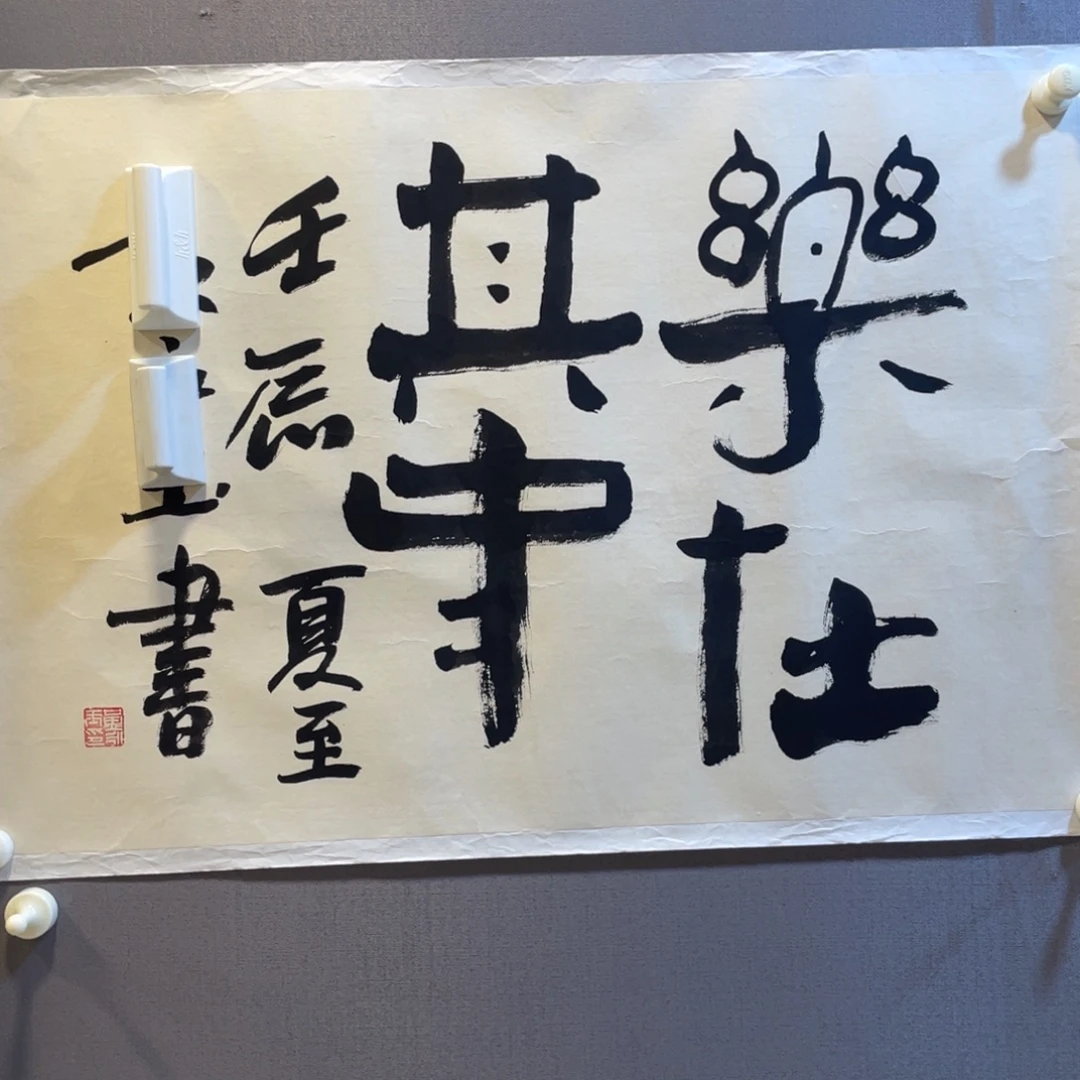 樂在
其中
壬辰夏至
書